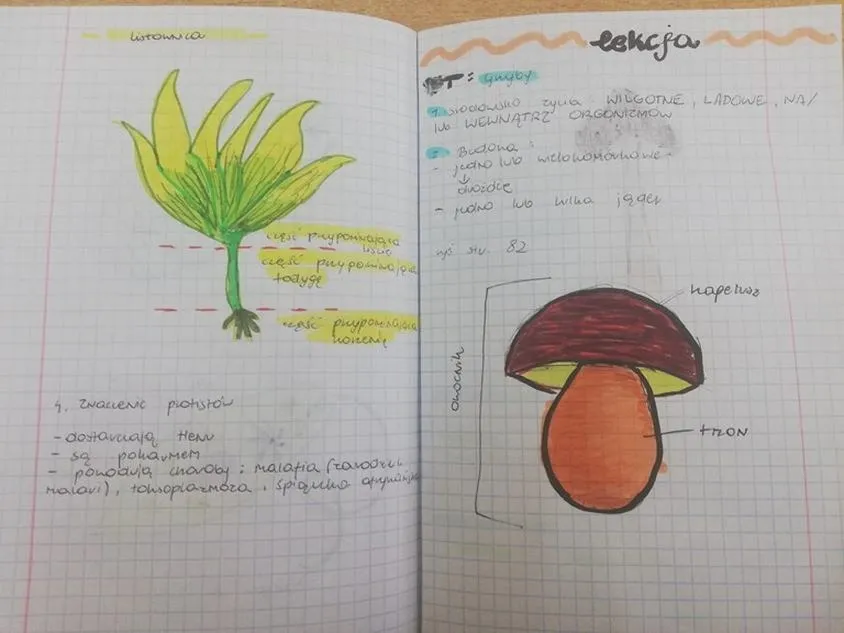 listownica
część przypominająca
liście
część przypominająca
łodygę
część przypominająca
korzenie
4. Znaczenie protistów
- dostarczają tlenu
- są pokarmem
- powodują choroby : malaria (zarodziec
malarii), toksoplazmoza, śpiączka afrykańska
lekcja
T: grzyby
1. środowisko życia WILGOTNE, LĄDOWE, NA/
lub WEWNĄTRZ ORGONIZMÓW
2. Budowa :
- jedno lub wielokomórkowe
↓
drożdże
- jedno lub wilka jąder
rys str. 82
kapelusz
owocnik
trzon